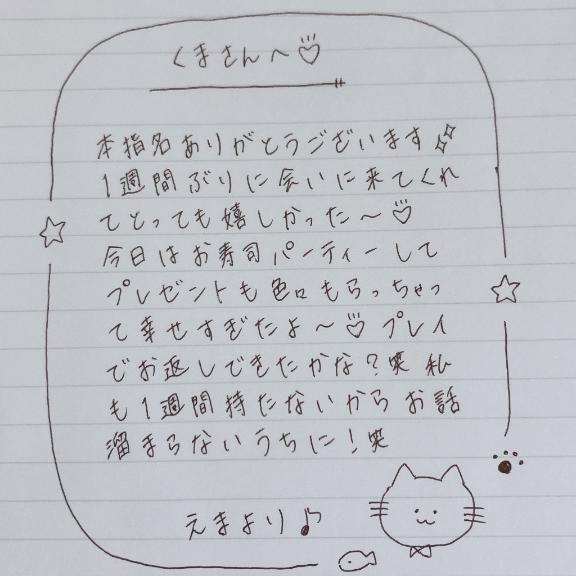 くまさんへ♡
本指名ありがとうございます✨
1週間ぶりに会いに来てくれ
てとっても嬉しかった〜♡
今日はお寿司パーティーして
プレゼントも色々もらっちゃっ
て幸せすぎたよ〜♡プレイ
でお返しできたかな？笑 私
も1週間持たないからお話
溜まらないうちに！笑
えまより♪